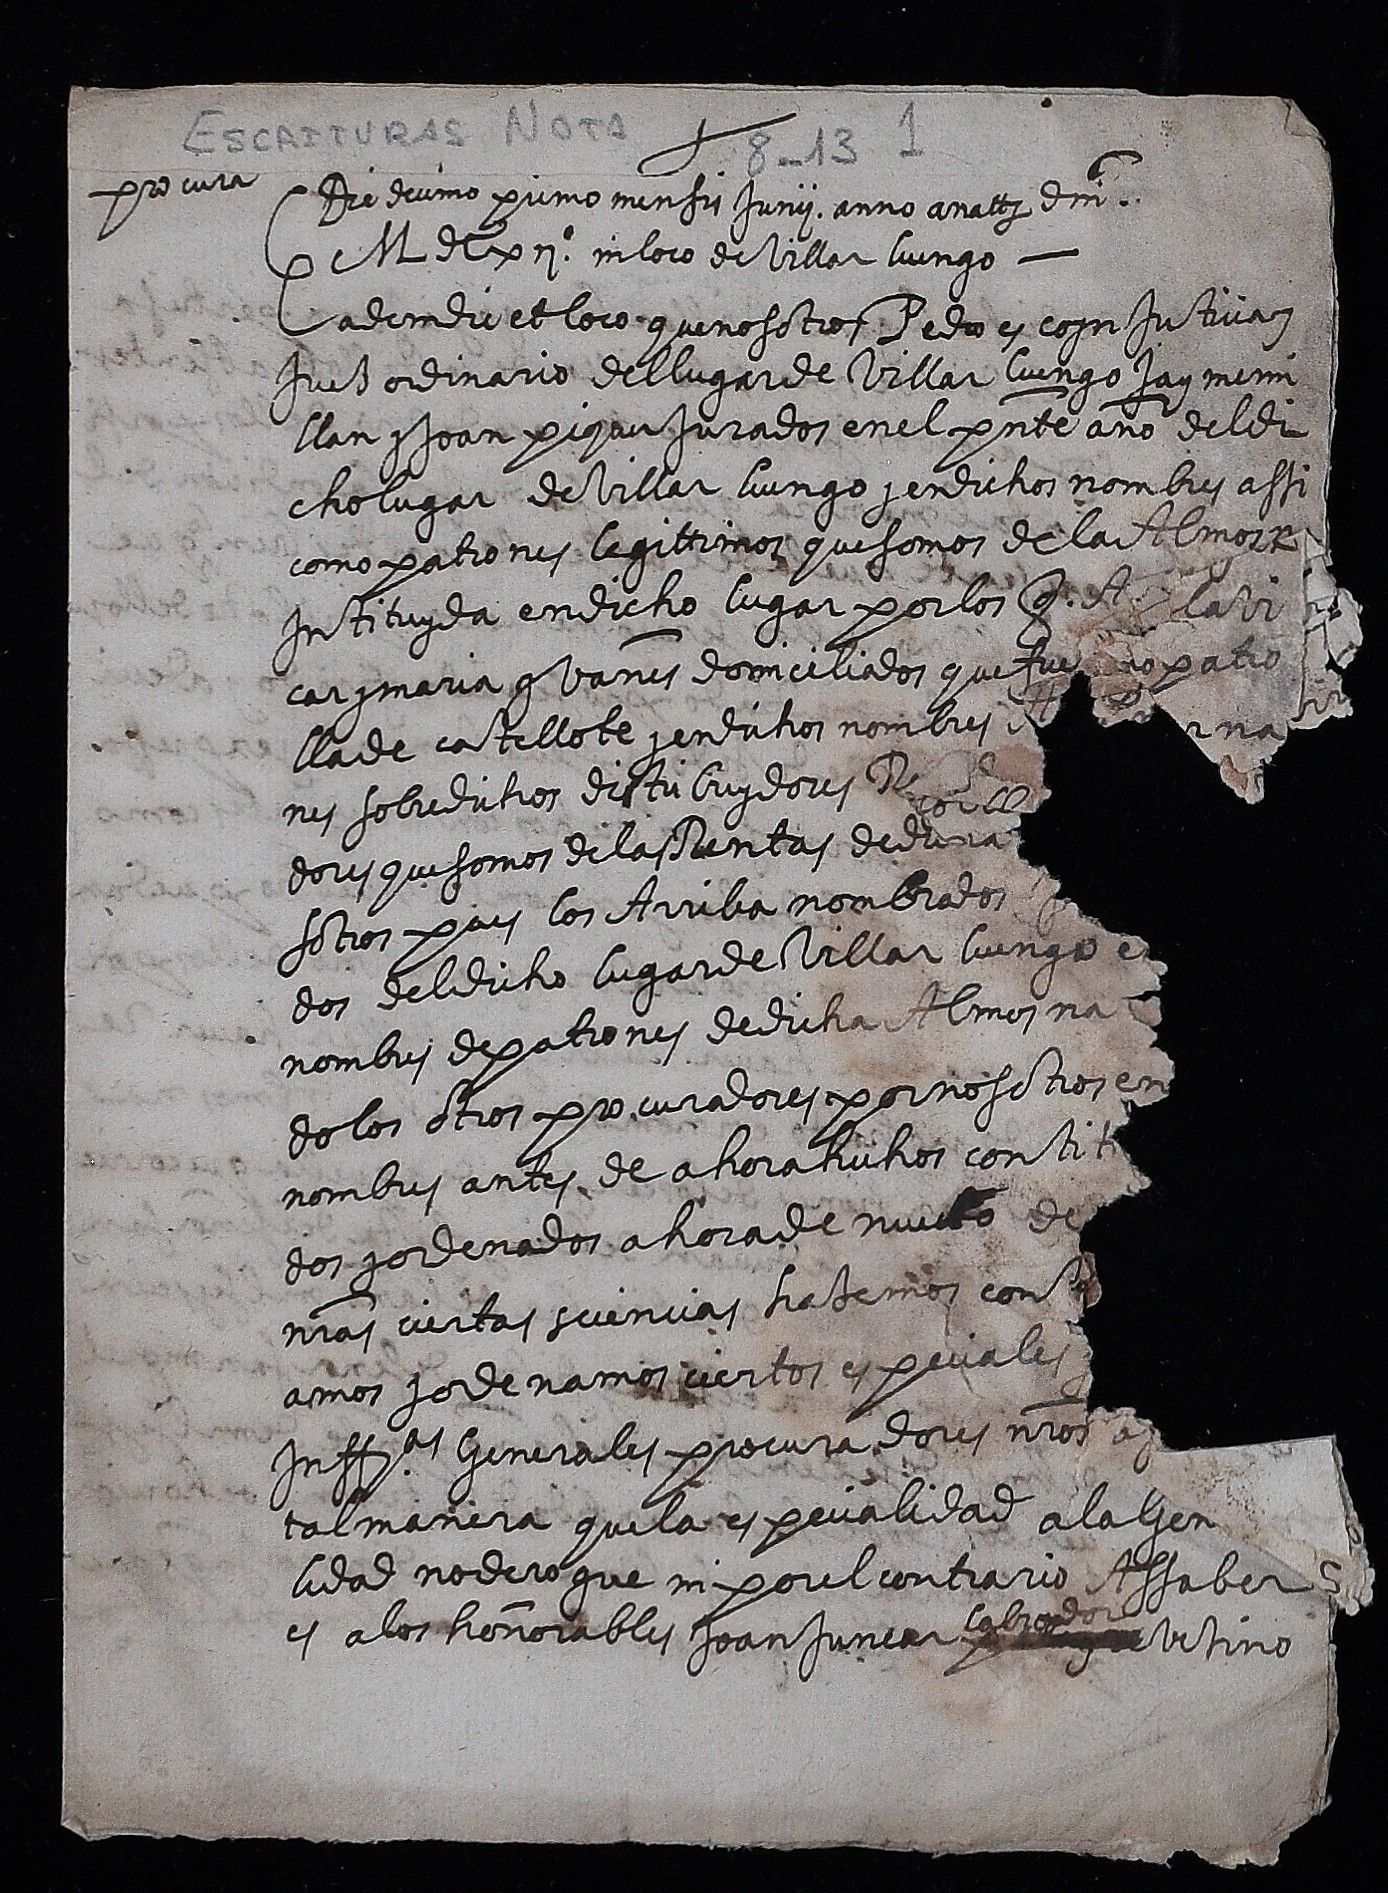 ESCRITURAS NOTA 8-13 1
procura
Die decimo primo mensis Junij. anno anattz dni
M dC x ij.º in loco de Villar luengo
eademdie et loco que nosotros Pedro escoyn Justicia y
Juez ordinario del lugar de Villar luengo Jayme mi
llan y Joan piquer Jurados en el pnte año del di
cho lugar de Villar luengo y en dichos nombres assi
como patrones legittimos que somos de la Almos
Instituyda en dicho lugar por los q. la vi
car y maria yvanes domiciliados que fue patro
lla de castellote y en dichos nombres rna
nes sobredichos distribuydores Re
coll
dores que somos de las Rentas de dicha
sotros pues los Arriba nombrados
dos del dicho lugar de Villar luengo en
nombres de patrones de dicha Almosna
do los otros procuradores por nosotros en
nombres antes de ahora hechos constit
dos y ordenados ahora de nuebo de
nras ciertas sciencias hazemos const
amos y ordenamos ciertos especiales y
Inffros Generales procuradores nros
tal manera que la especialidad a la Gen
lidad no derogue ni por el contrario Assaber
es a los honorables Joan Juncar labrador vezino